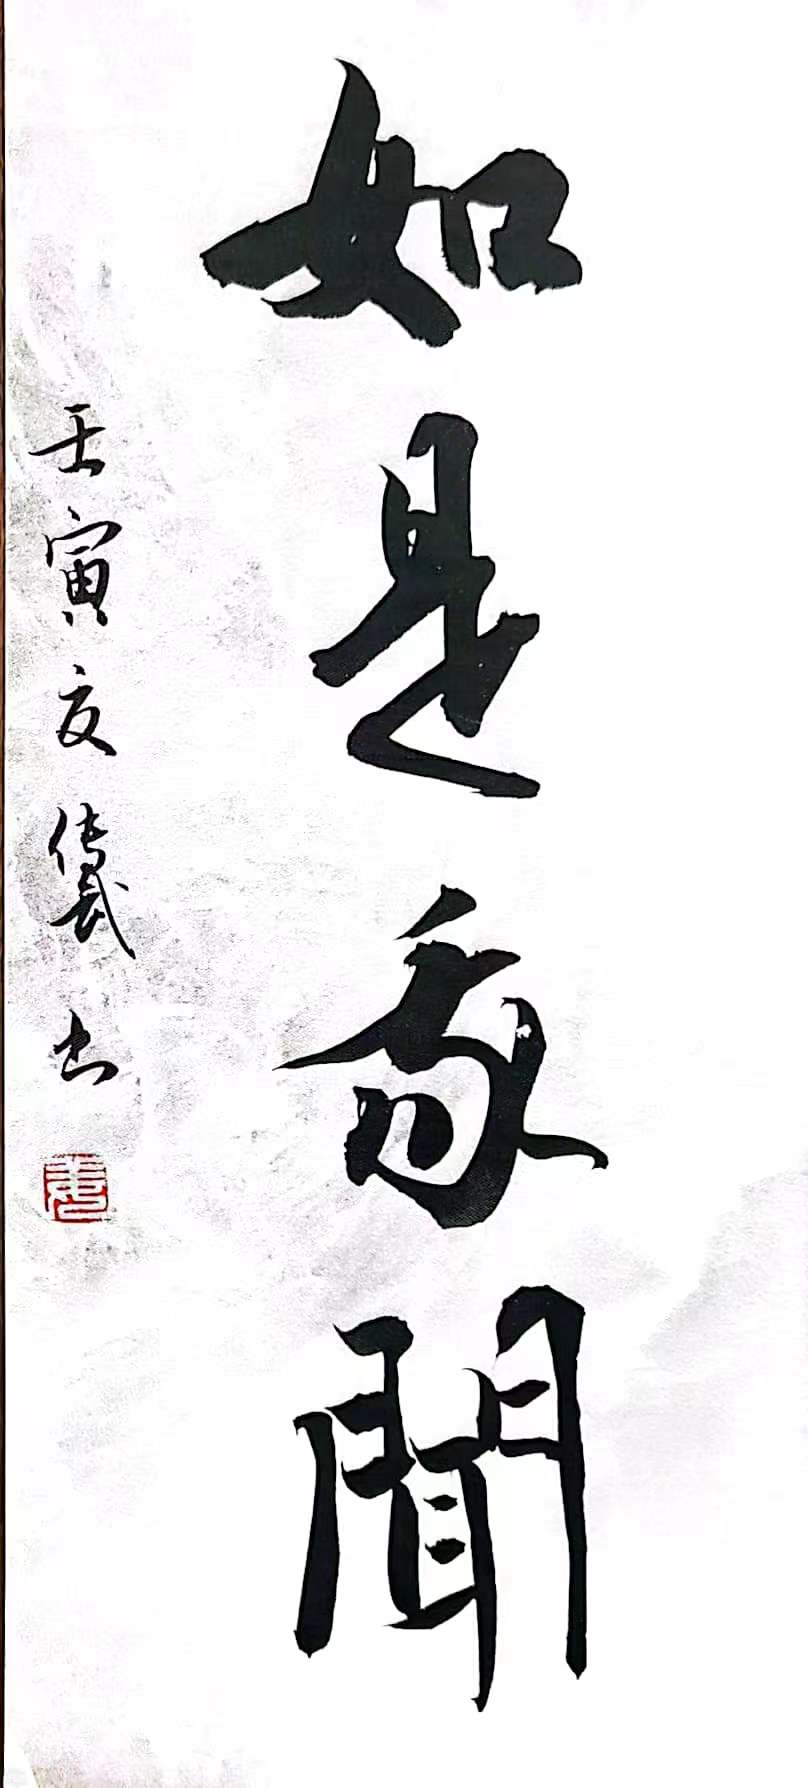 如是我聞
壬寅夏 書